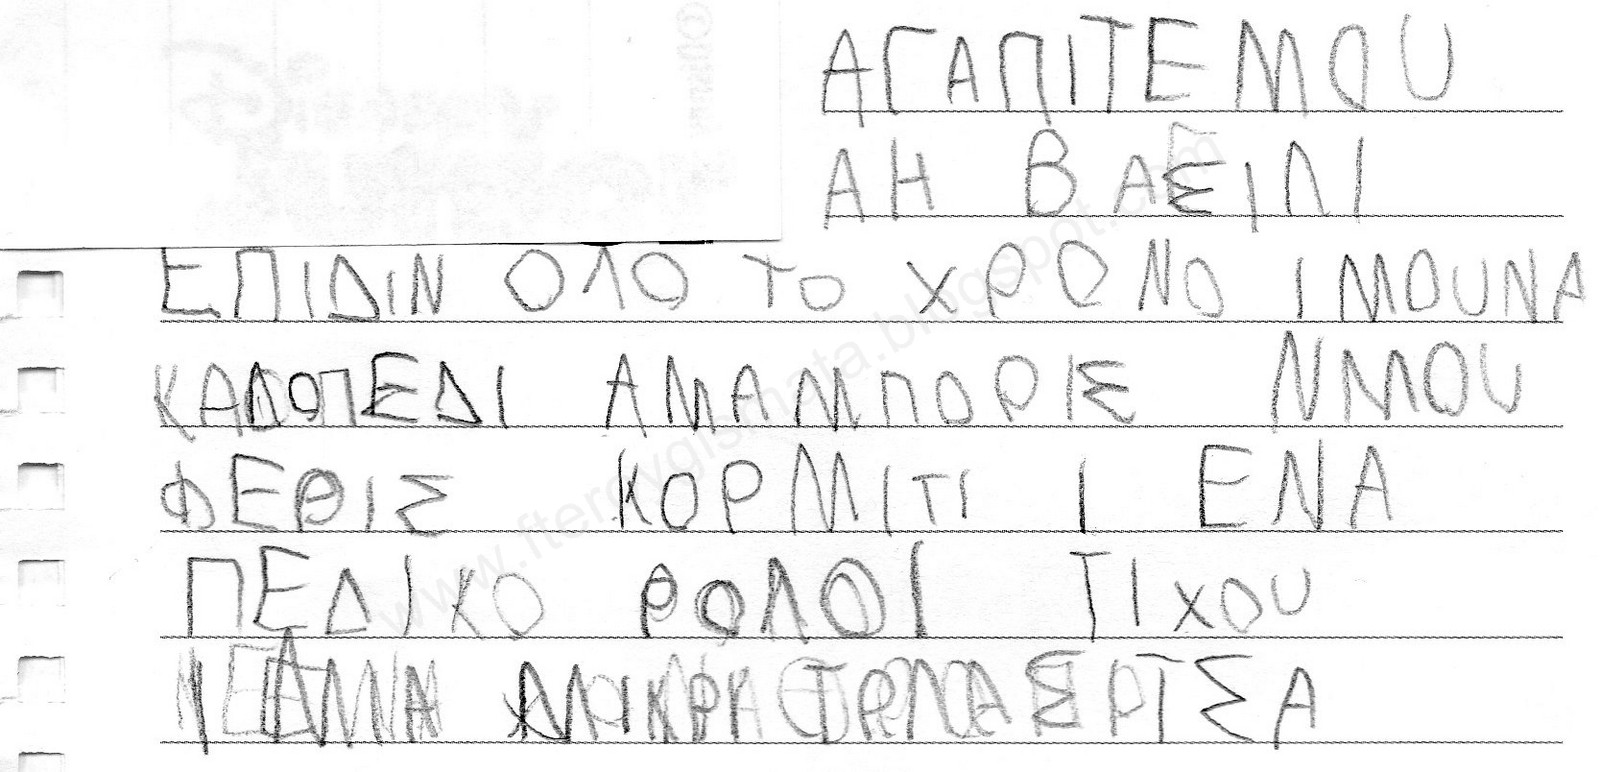 ΑΓΑΠΙΤΕ ΜΟΥ
ΑΗ ΒΑΣΙΛΙ
ΕΠΙΔΙΝ ΟΛΟ ΤΟ ΧΡΟΝΟ ΙΜΟΥΝΑ
ΚΑΛΟΠΕΔΙ ΑΜΑ ΜΠΟΡΙΣ Ν ΜΟΥ
ΦΕΡΙΣ ΚΟΡΜΙΤΙ Ι ΕΝΑ
ΠΕΔΙΚΟ ΡΟΛΟΙ ΤΙΧΟΥ
www.fteroygismata.blogspot.com